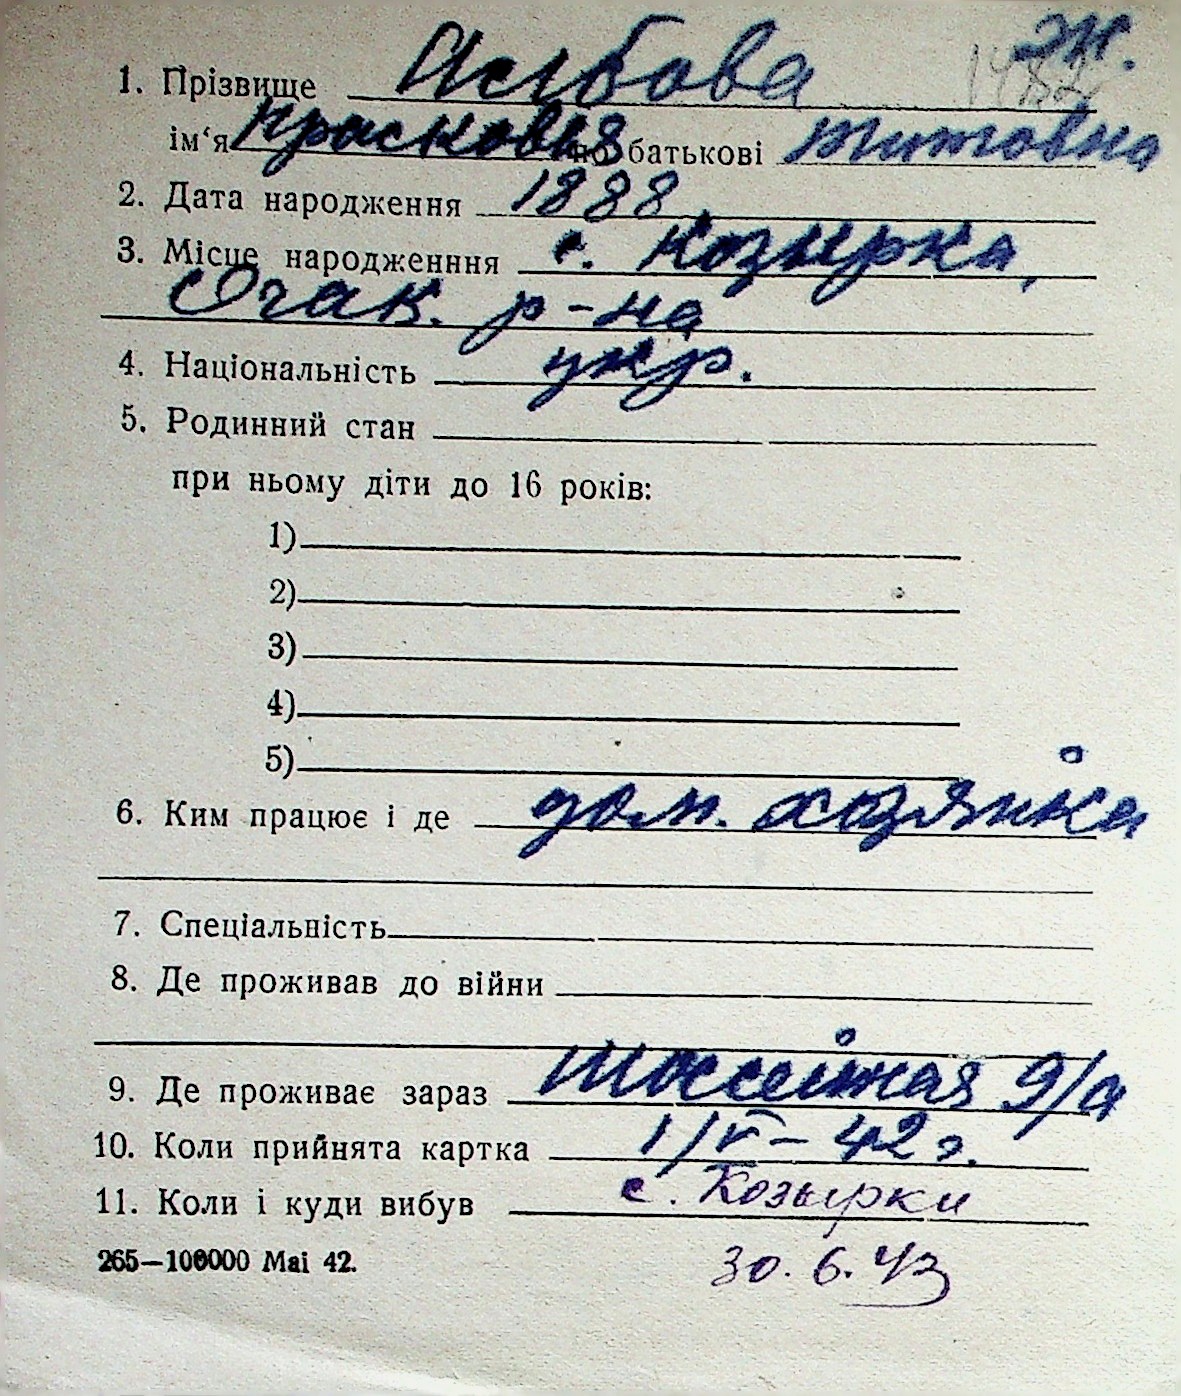 ж.
1. Прізвище Асıбова
ім‘я Прасковья по батькові Титовна
2. Дата народження 1888
3. Місце народженння с. Козырка,
Очак. р-на
4. Національність укр.
5. Родинний стан
при ньому діти до 16 років:
1)
2)
3)
4)
5)
6. Ким працює і де дом. хозяйка
7. Спеціальність
8. Де проживав до війни
9. Де проживає зараз Шоссейная 9/а
10. Коли прийнята картка 1/V–42 г.
11. Коли і куди вибув с. Козырки
265—100000 Mai 42. 30. 6. 43